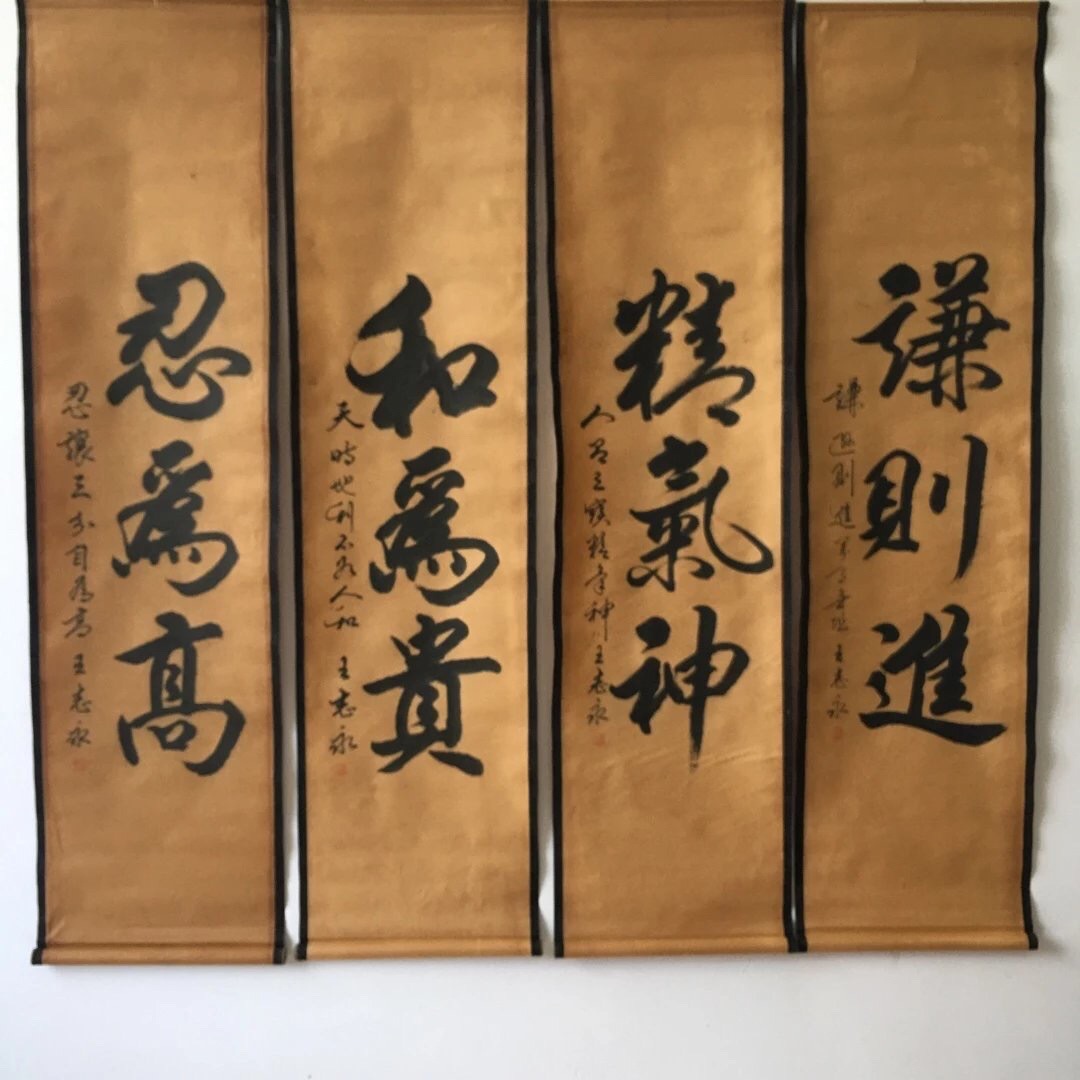 謙則進
謙遜則進 王志永
精氣神
人有三寶精氣神 王志永
和為貴
天時地利不如人和 王志永
忍為高
忍讓三分自為高 王志永